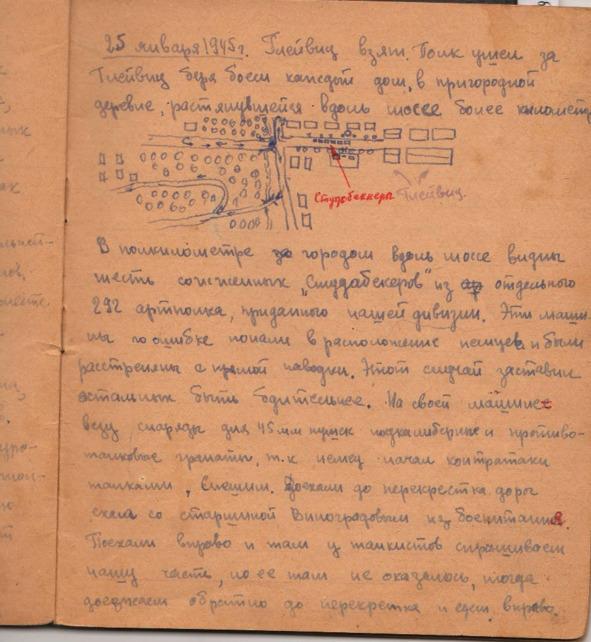 25 января 1945г. Глейвиц взят. Полк ушел за
Глейвиц беря боем каждый дом, в пригородной
деревне, растянувшейся вдоль шоссе более километр
Студебеккера
Глейвиц.
В полкилометре за городом вдоль шоссе видны
шесть сожженных „Студабекеров" из отдельного
292 артполка, приданного нашей дивизии. Эти маши-
ны по ошибке попали в расположение немцев и были
расстреляны с прямой наводки. Этот случай заставил
остальных быть бдительнее. На своей машине
везу снаряды для 45 мм пушек подкалиберные и противо-
танковые гранаты, т.к немец начал контратаки
танками. Спешим. Доехали до перекрестка дорог
ехали со старшиной Виноградовым из боепитания.
Поехали вправо и там у танкистов спрашиваем
нашу часть, но ее там не оказалось, тогда
доезжаем обратно до перекретка и едем вправо.